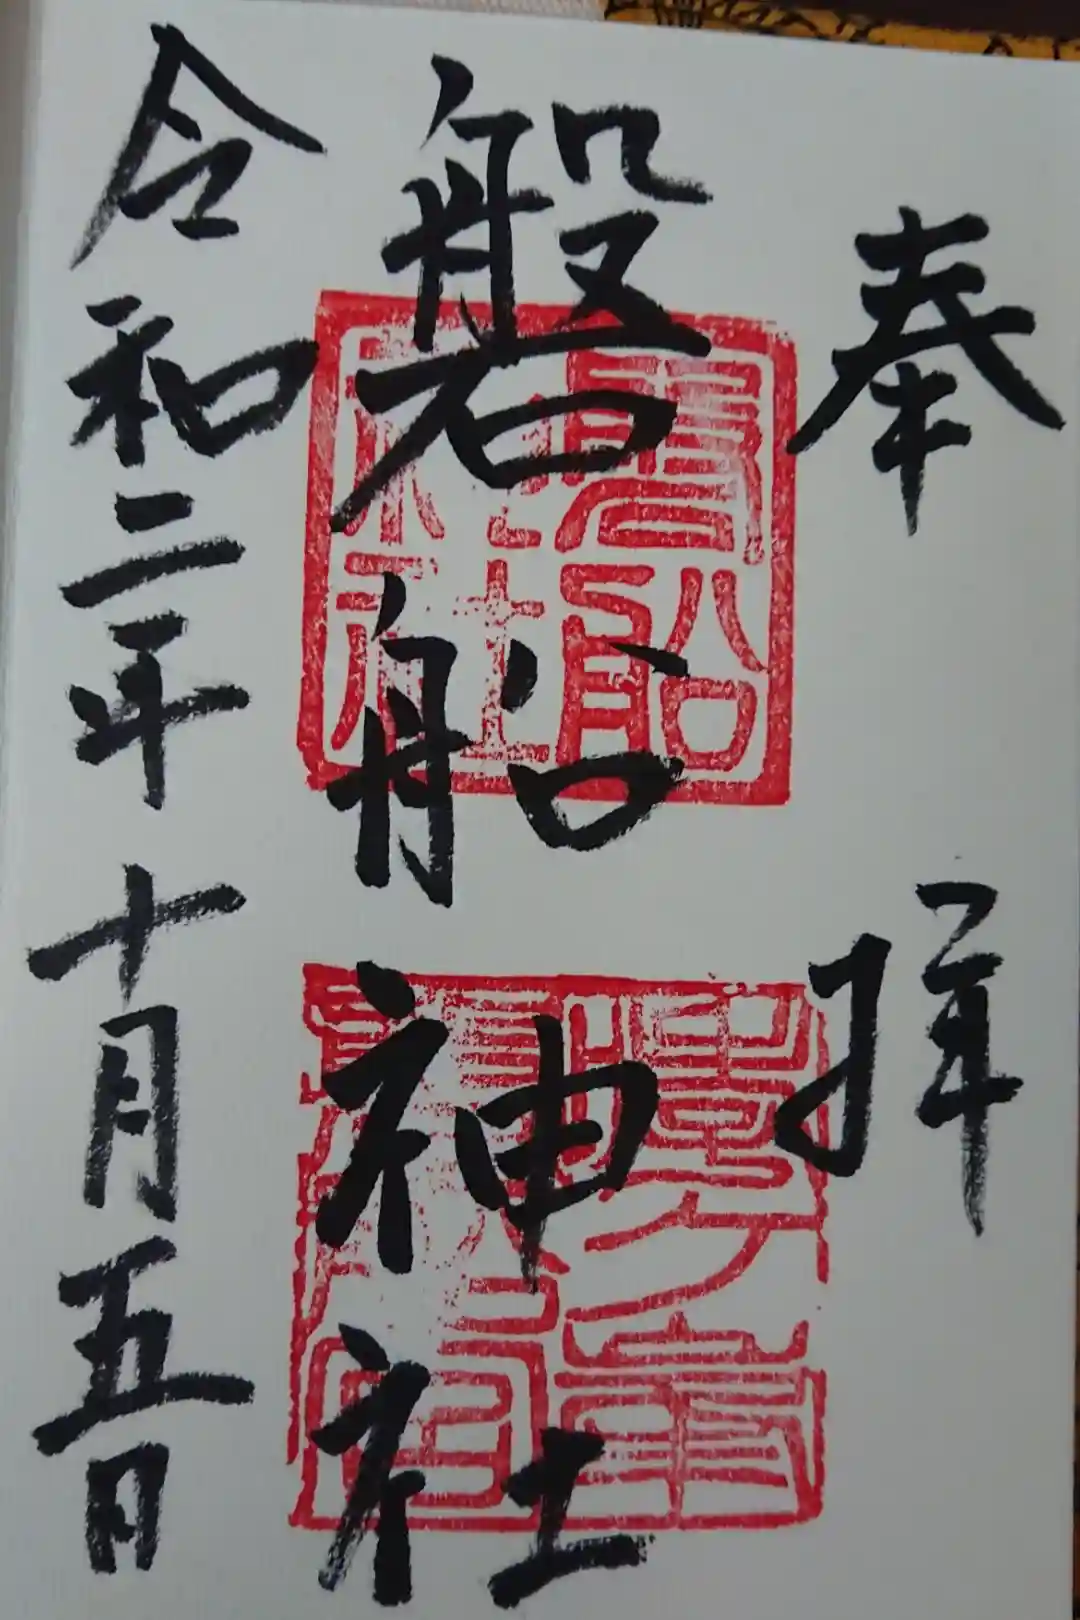 奉拜
磐船神社
令和二年十月五日
磐船
神社